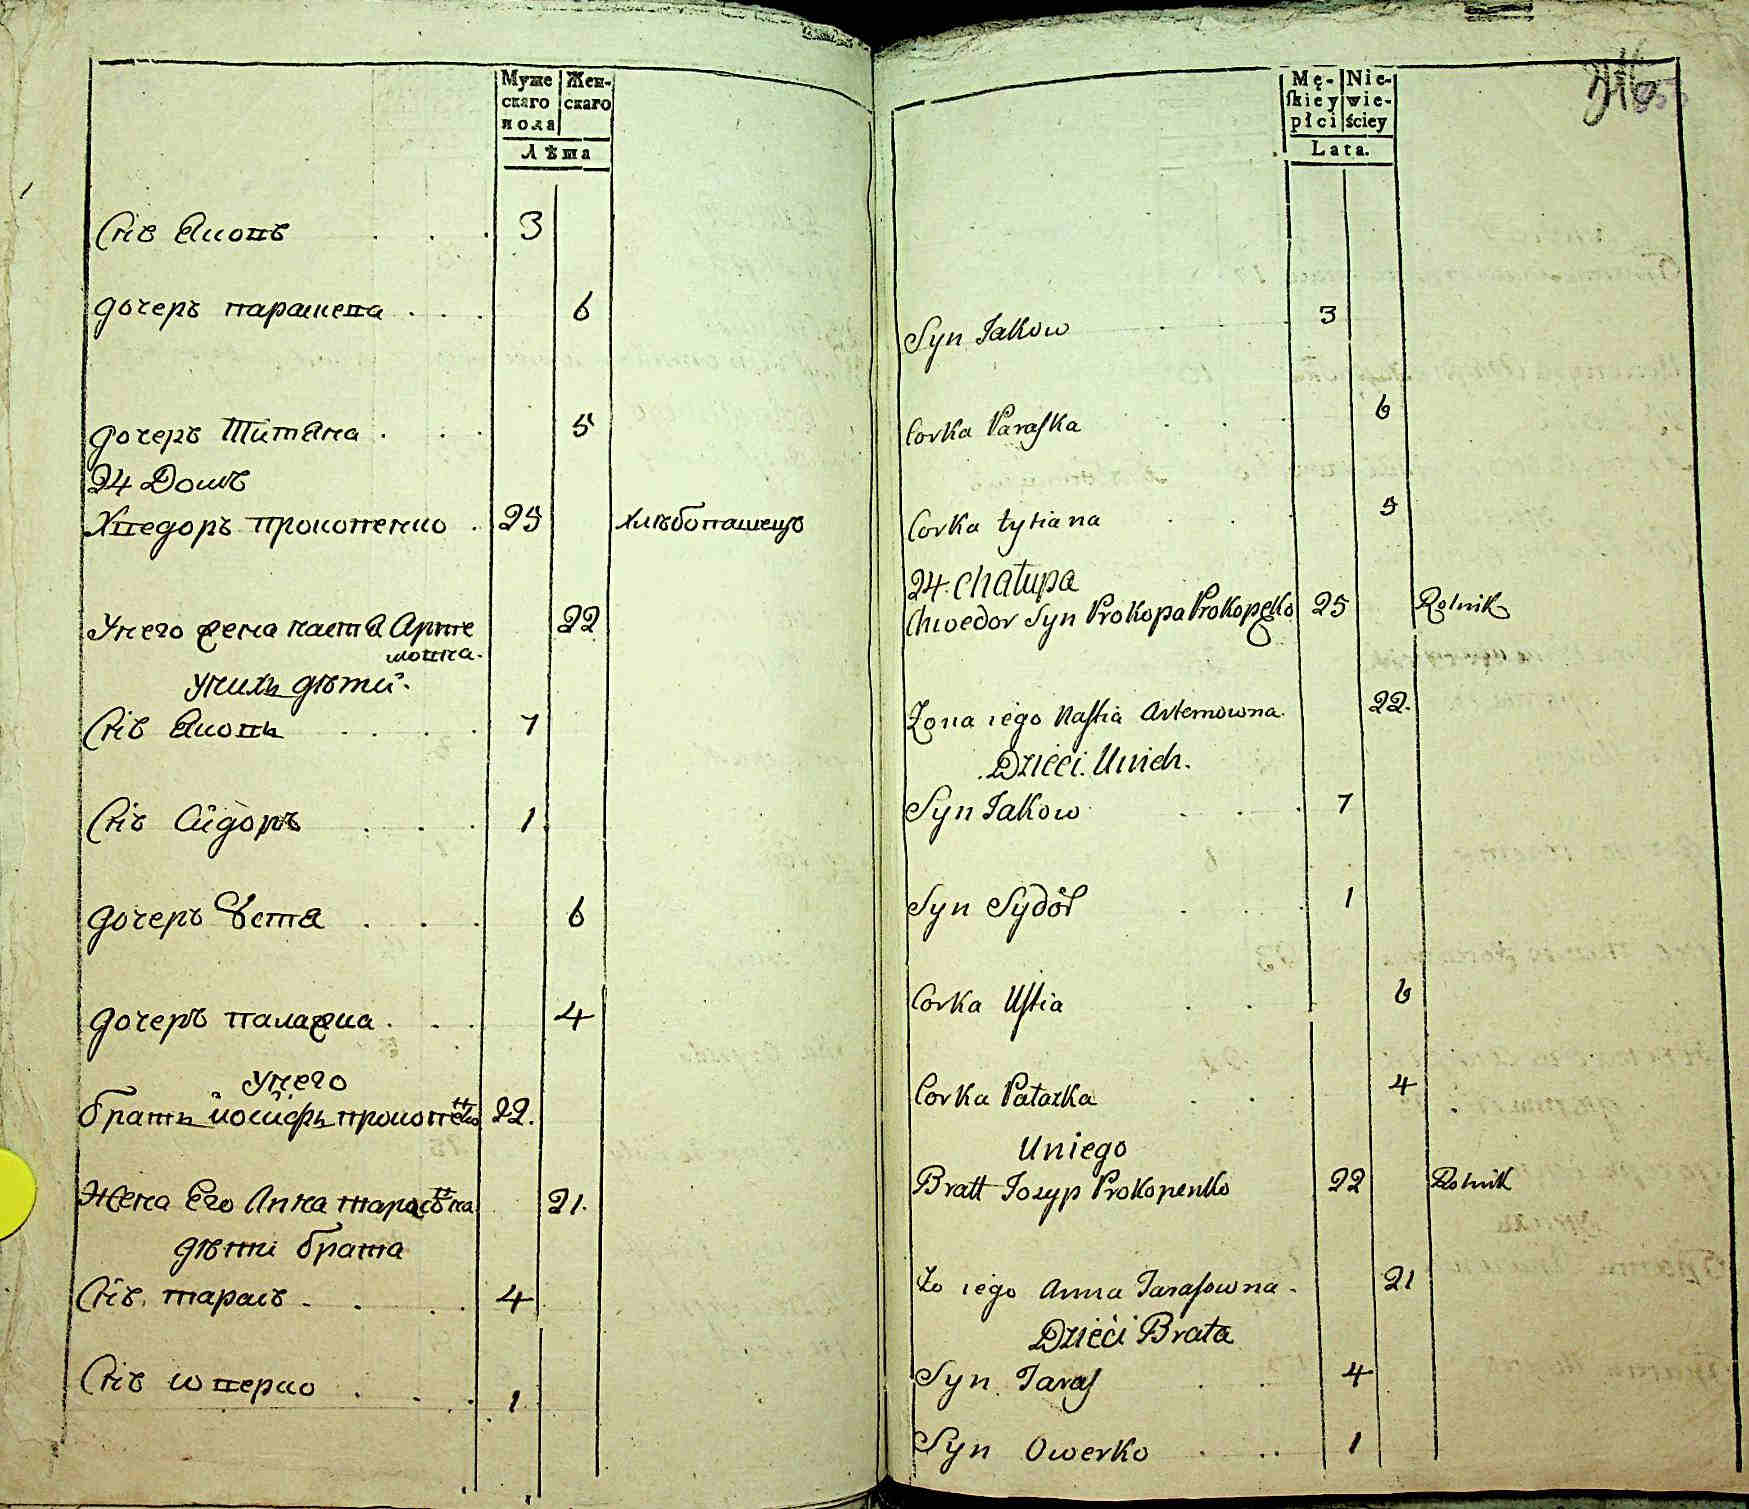 Муже Жен-
скаго скаго
пола
Лѣта
Снъ Якопъ . . . 3
дочеръ парашепа . . . 6
дочеръ Титяна . . . 5
24 Домъ
Хпедоръ прокопенко . 25 хлѣбопашецъ
Унего жена настя Арте
мовна. 22
унихъ дѣти.
Снъ Якопъ . . . 7
Снъ Сидоръ . . . 1
дочеръ Устя . . . 6
дочеръ палажка . . . 4
унего
братъ йосифъ прокопенко 22.
Жена Его Анна тарасовна 21.
дѣти брата
Снъ тарасъ . . . 4
Снъ юперко . . . 1
Mę- Nie-
skiey wie-
płci ściey
Lata.
Syn Jakow . . . 3
Corka Paraska . . . 6
Corka tytiana . . . 5
24. Chałupa
Chwedor Syn Prokopa Prokopęko 25 Rolnik
Żona iego Nastia Artemowna. 22.
Dzieci Unich.
Syn Jakow . . . 7
Syn Sydor . . . 1
Corka Ustia . . . 6
Corka Pałazka . . . 4
Uniego
Bratt Jozyp Prokopenko 22 Rolnik
Żo iego Anna Tarasowna . 21
Dzieci Brata
Syn Taras . . . 4
Syn Owerko . . . 1